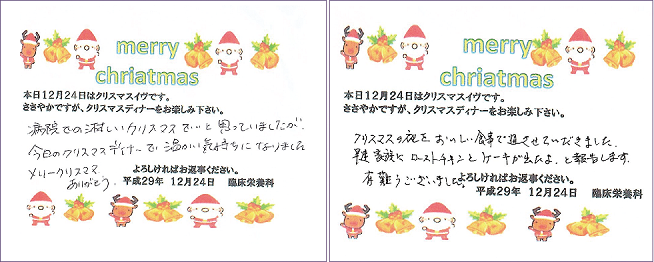 merry
chriatmas
本日12月24日はクリスマスイヴです。
ささやかですが、クリスマスディナーをお楽しみ下さい。
病院での淋しいクリスマスで…と思っていましたが、
今日のクリスマスディナーで温かい気持ちになりました
メリークリスマス
ありがとう。
よろしければお返事ください。
平成29年 12月24日 臨床栄養科
merry
chriatmas
本日12月24日はクリスマスイヴです。
ささやかですが、クリスマスディナーをお楽しみ下さい。
クリスマスの夜をおいしい食事で過させていただきました。
家族に ローストチキンとケーキが出たよ、と報告します。
有難うございました。
よろしければお返事ください。
平成29年 12月24日 臨床栄養科